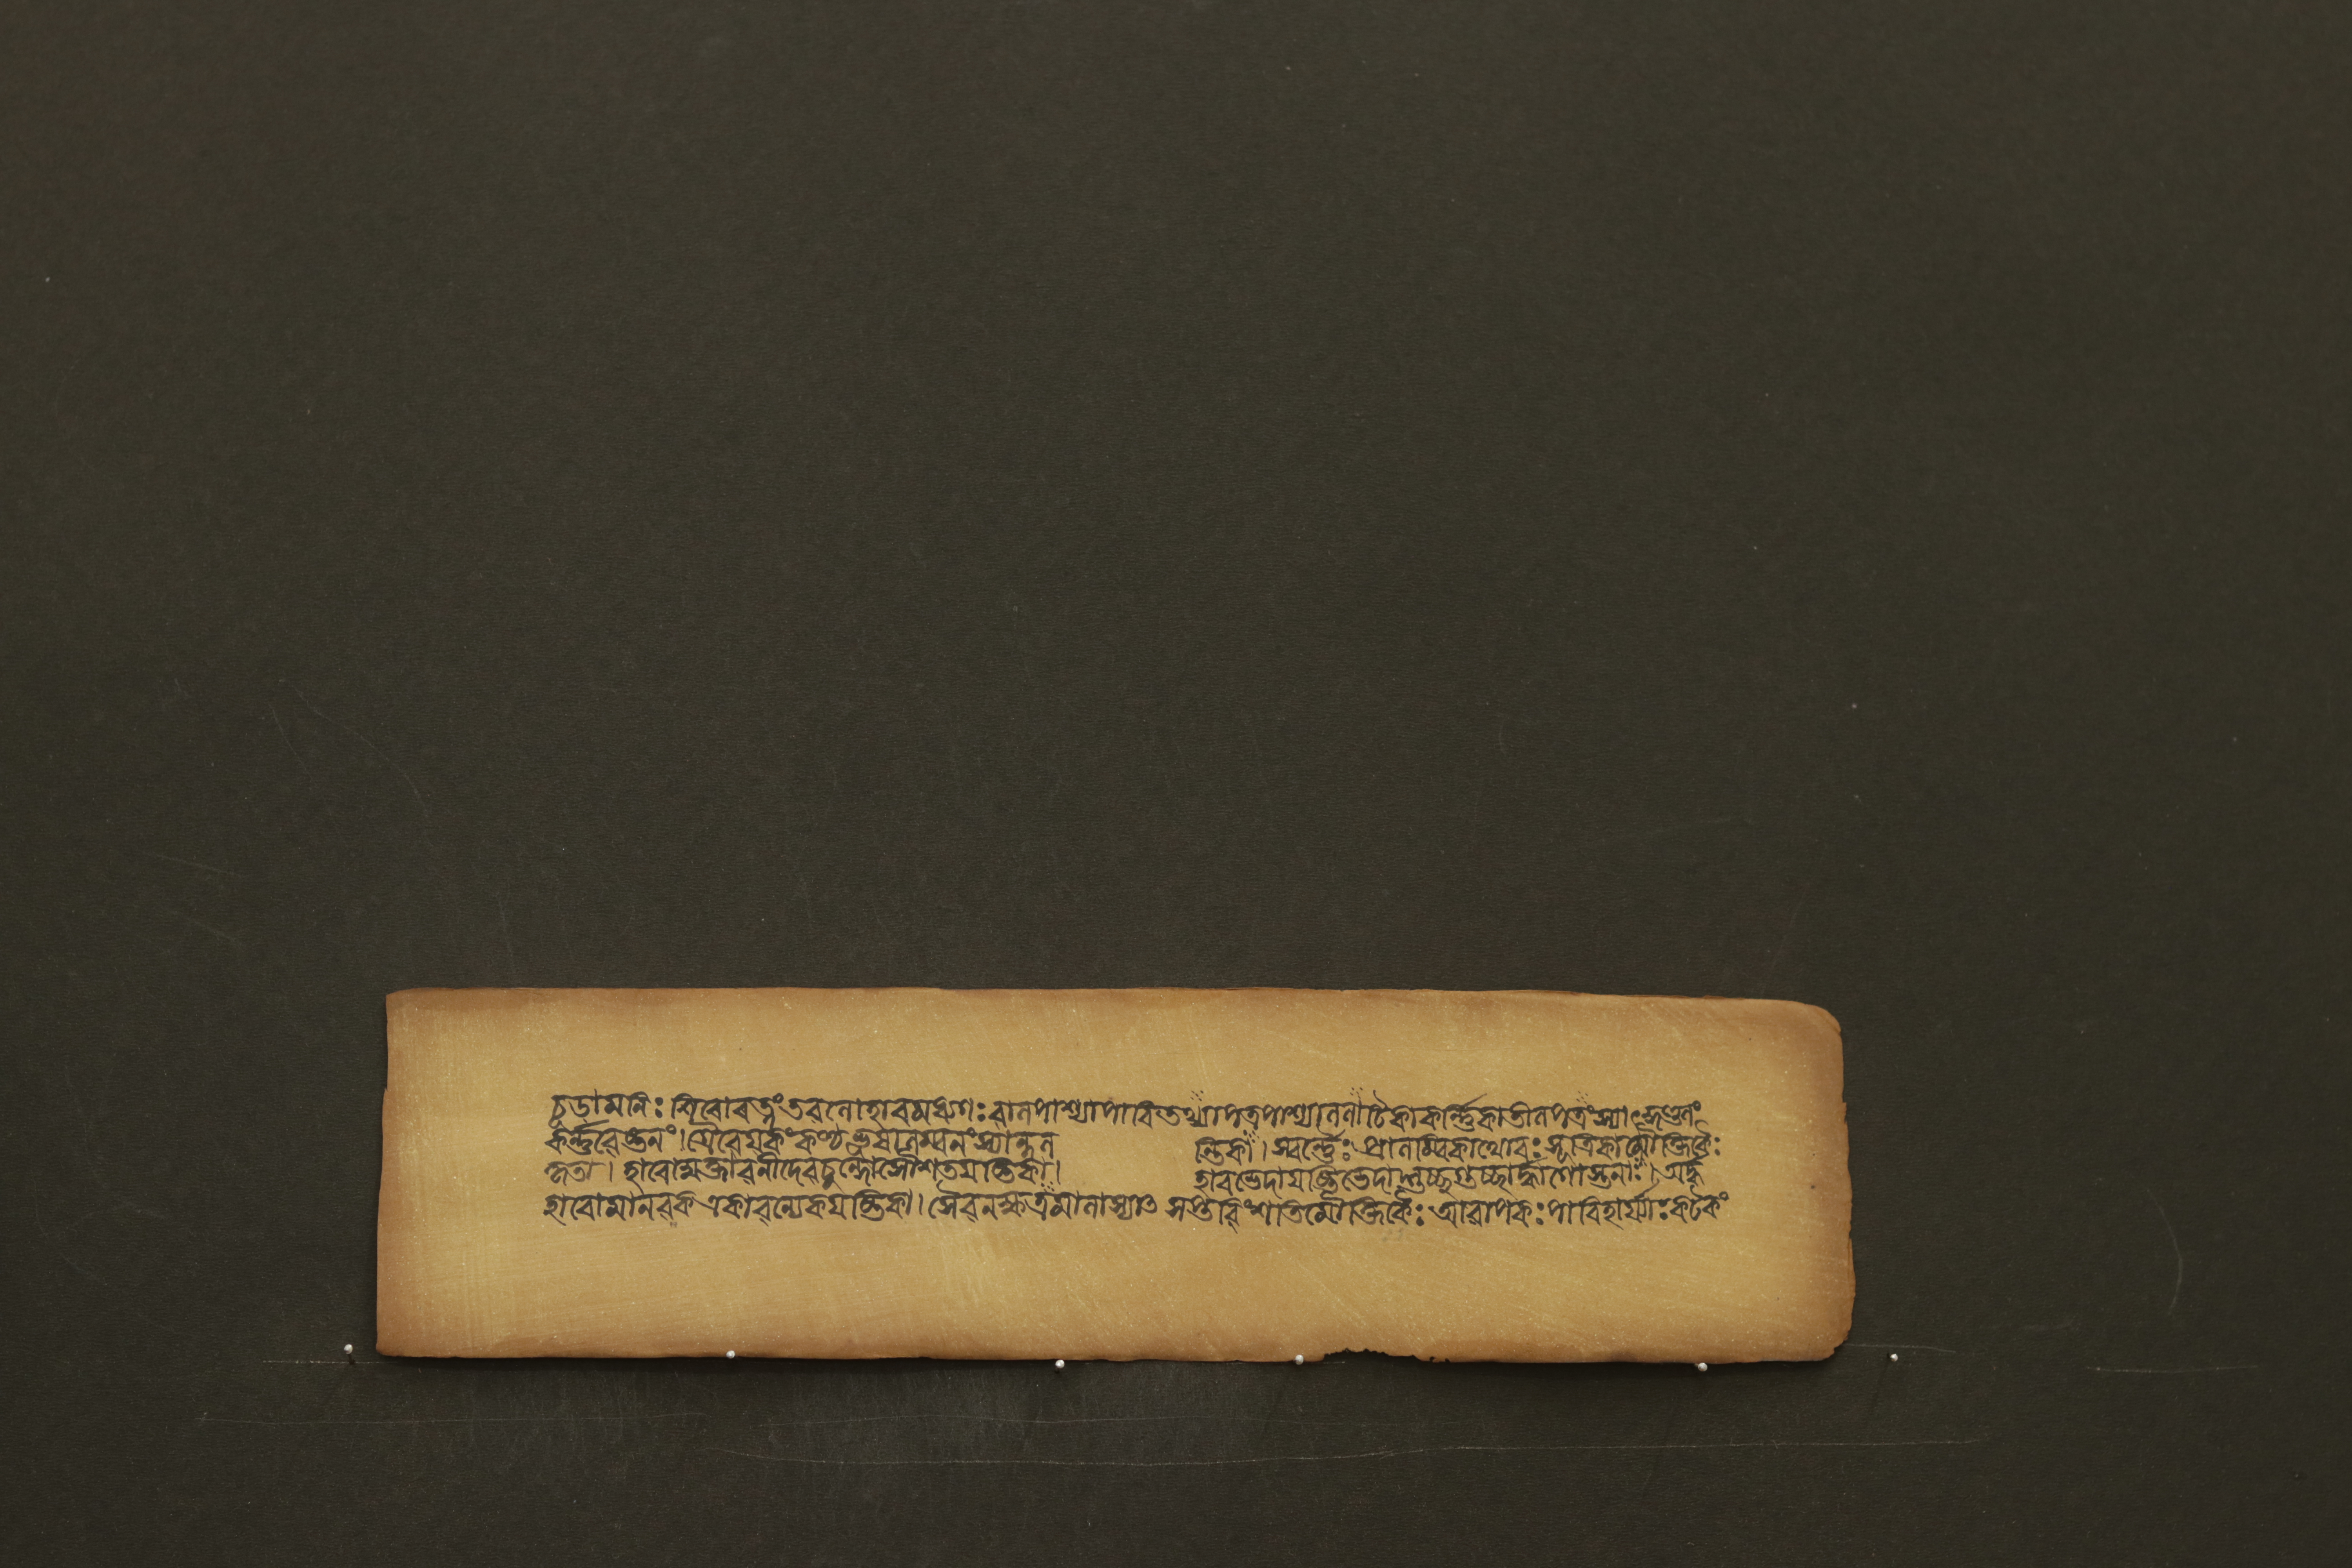 চূডামনিঃ শিৰোৰত্নং তৰলোহাৰমধ্যগঃ বালপাশ্যাপাৰিতথ্যাপত্ৰপাশ্যাললাটিকাকৰ্ণ্ণিকাতালপত্ৰংস্যাৎকুণ্ডলং
কৰ্ণ্ণবেষ্টনং। গ্ৰৈবেযকংকণ্ঠভূষালম্বনংস্যাল্লল ন্তিকা। স্বৰ্ণ্ণৈঃ প্ৰালম্বিকাথোৰঃসূত্ৰিকামৌক্তিকৈঃ
কৃতা। হাৰোমুক্তাবলীদেবচ্ছন্দোসৌশতযষ্টিকা। হাৰভেদাযষ্টিভেদাদ্গুচ্ছগুচ্ছাৰ্দ্ধগোস্তনাঃ। অৰ্দ্ধ
হাৰোমানবক একাবল্যেকযষ্টিকা। সৈবনক্ষত্ৰমালাস্যাৎ সপ্তবিংশতিমৌক্তিকৈঃ আবাপকঃপাৰিহাৰ্য্যঃকটকং